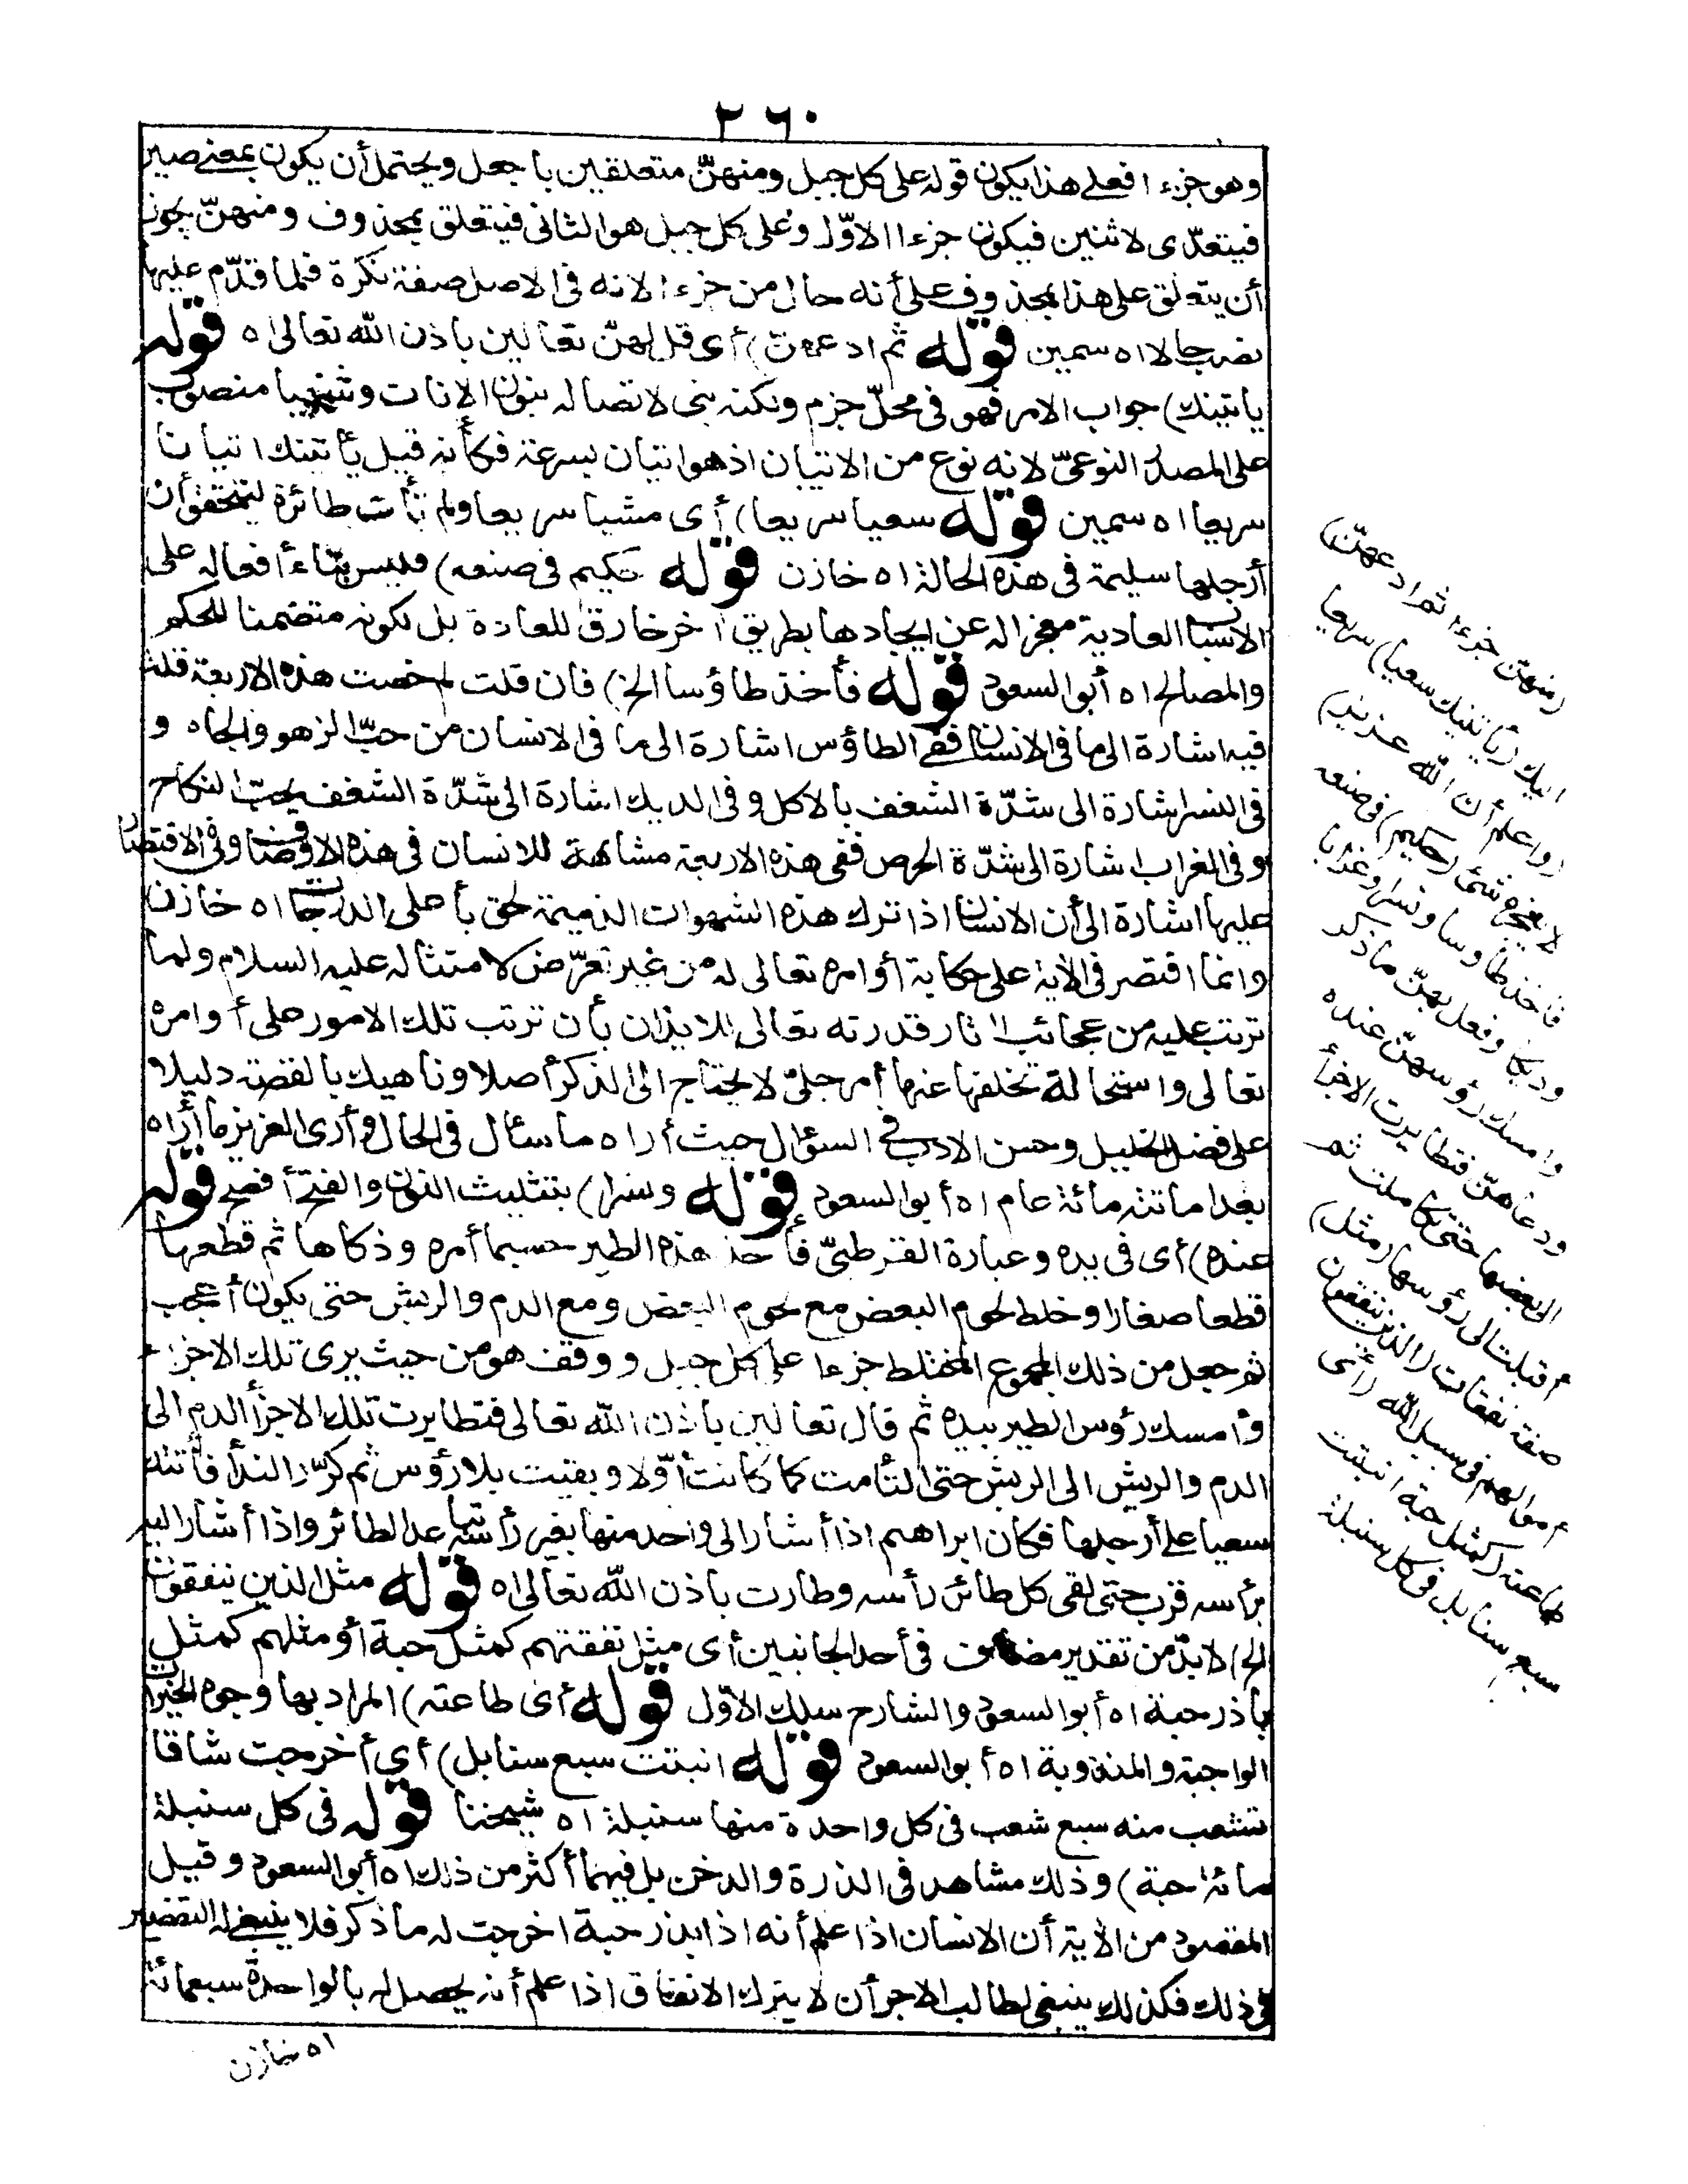 ٢٦٠
وهو جزءا فعلى هذا يكون قوله على كل جبل ومنهنّ متعلقين باجعل ويحتمل أن يكون بمعنى صير
فيتعدّى لاثنين فيكون جزءا الاوّل وعلى كل جبل هو الثانى فيتعلق بمحذوف ومنهنّ يجوز
أن يتعلق على هذا بمحذوف على أنه حال من جزءا لانه فى الاصل صفة نكرة فلما قدّم عليها
نصب حالا اه سمين قوله ثم ادعهنّ) أى قل لهنّ تعالين باذن الله تعالى اه قوله
يأتينك) جواب الامر فهو فى محلّ جزم ولكنه بنى لاتصاله بنون الاناث وسعيا منصوب
على المصدر النوعىّ لانه نوع من الاتيان اذ هو اتيان بسرعة فكأنه قيل يأتينك اتيانا
سريعا اه سمين قوله سعيا سريعا) أى مشيا سريعا ولم تأت طائرة ليتحقق أن
أرجلها سليمة فى هذه الحالة اه خازن قوله حكيم فى صنعه) فليس بناء أفعاله على
الاسباب العادية معجزا له عن ايجادها بطريق آخر خارق للعادة بل لكونه متضمنا للحكم
والمصالح اه أبو السعود قوله فأخذ طاؤسا الخ) فان قلت لم خصت هذه الاربعة قلت
فيه اشارة الى ما فى الانسان ففى الطاؤس اشارة الى ما فى الانسان من حبّ الزهو والجاه و
فى النسر اشارة الى شدّة الشغف بالاكل وفى الديك اشارة الى شدّة الشغف بحبّ النكاح
وفى الغراب اشارة الى شدّة الحرص ففى هذه الاربعة مشابهة للانسان فى هذه الاوصاف وفى الاقتصار
عليها اشارة الى أن الانسان اذا ترك هذه الشهوات الذميمة لحق بأعلى الدرجات اه خازن
وانما اقتصر فى الآية على حكاية أوامره تعالى له من غير تعرّض لامتثاله عليه السلام ولما
ترتب عليه من عجائب آثار قدرته تعالى للايذان بأن ترتب تلك الامور على أوامره
تعالى واستحالة تخلفها عنها أمر جلىّ لا يحتاج الى الذكر أصلا وناهيك بالقصة دليلا
على فضل الخليل وحسن الادب فى السؤال حيث أراه ما سئال فى الحال وأرى العزيز ما أراه
بعد اماتته مائة عام اه أبو السعود قوله ونسرا) بتثليث النون والفتح أفصح قوله
عنده) أى فى يده وعبارة القرطبىّ فأخذ هذه الطير حسبما أمره وذكاها ثم قطعها
قطعا صغارا وخلط لحوم البعض مع لحوم البعض ومع الدم والريش حتى يكون أعجب
ثم جعل من ذلك المجموع المختلط جزءا على كل جبل ووقف هو من حيث يرى تلك الاجزاء
وأمسك رؤس الطير بيده ثم قال تعالين باذن الله تعالى فتطايرت تلك الاجزاء الدم الى
الدم والريش الى الريش حتى التأمت كما كانت أوّلا وبقيت بلا رؤس ثم كرّر النداء فأتته
سعيا على أرجلها فكان ابراهيم اذا أشار الى واحد منها بغير رأسه تباعد الطائر واذا أشار اليه
برأسه قرب حتى لقى كل طائر رأسه وطارت باذن الله تعالى اه قوله مثل الذين ينفقون
الخ) لا بدّ من تقدير مضاف فى أحد الجانبين أى مثل نفقتهم كمثل حبة أو مثلهم كمثل
باذر حبة اه أبو السعود والشارح سلك الاوّل قوله أى طاعته) المراد بها وجوه الخيرات
الواجبة والمندوبة اه أبو السعود قوله انبتت سبع سنابل) أى أخرجت شاقا
تتشعب منه سبع شعب فى كل واحدة منها سنبلة اه شيخنا قوله فى كل سنبلة
مائة حبة) وذلك مشاهد فى الذرة والدخن بل فيهما أكثر من ذلك اه أبو السعود وقيل
المقصود من الآية أن الانسان اذا علم أنه اذا بذر حبة اخرجت له ما ذكر فلا ينبغى له التقصير
فى ذلك فكذلك ينبغى لطالب الاجر أن لا يترك الانفاق اذا علم أنه يحصل له بالواحدة سبعمائة
اه خازن
(منهنّ جزءا ثم ادعهنّ)
اليك (يأتينك سعيا) سريعا
(واعلم أن الله عزيز)
لا يعجزه شئ (حكيم) فى صنعه
فأخذ طاوسا ونسرا وغرابا
وديكا وفعل بهنّ ما ذكر
وامسك رؤسهنّ عنده
ودعاهنّ فتطايرت الاجزأ
الى بعضها حتى تكاملت ثم
أقبلت الى رؤسها (مثل)
صفة نفقات (الذين ينفقون
أموالهم فى سبيل الله) أى
طاعته (كمثل حبة انبتت
سبع سنابل فى كل سنبلة